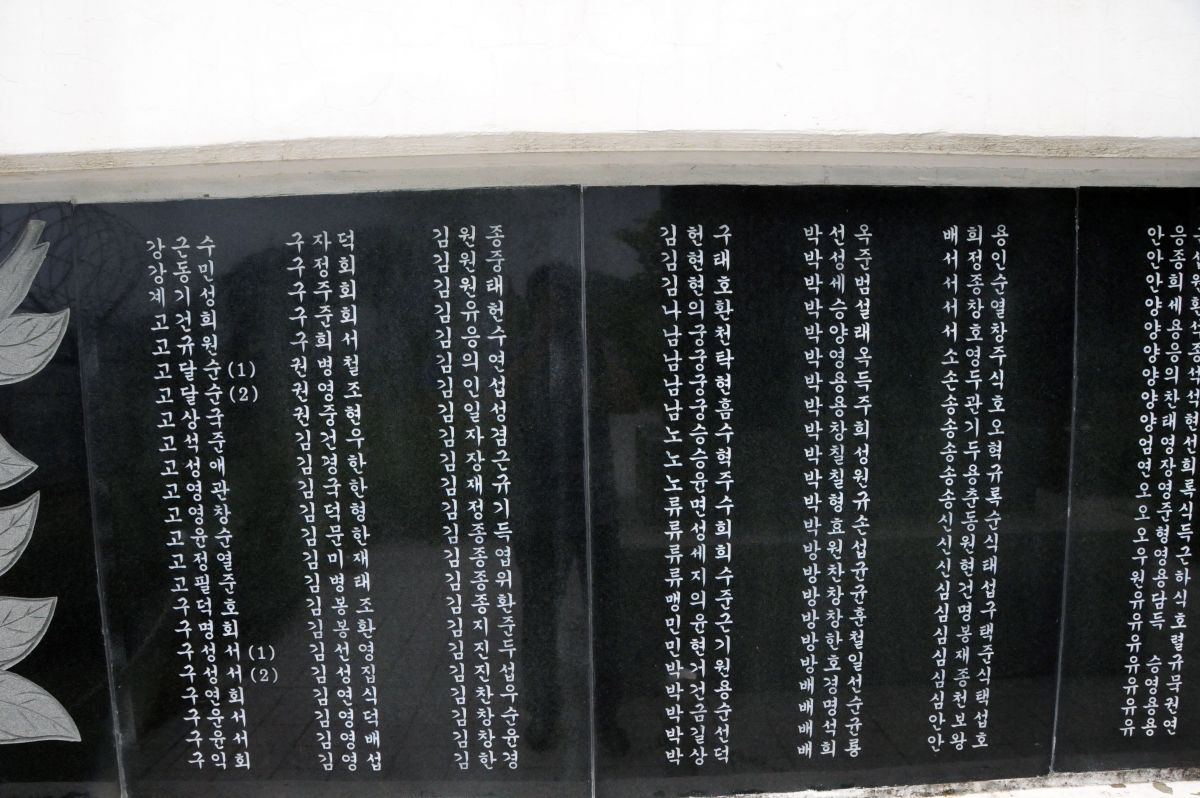 강근수
강동민
계기성
고건희
고규원
고달순 (1)
고달순 (2)
고상국
고석준
고성애
고영관
고영창
고윤순
고정열
고필준
구덕호
구명회
구성서 (1)
구성서 (2)
구연회
구운서
구윤서
구익회
구자덕
구정회
구주회
구준회
구희서
권병철
권영조
권중현
김건우
김경한
김국한
김덕형
김문한
김미재
김병태
김봉조
김봉환
김선영
김성집
김연식
김영덕
김영배
김영섭
김원종
김원중
김원태
김유헌
김응수
김의연
김인섭
김일성
김자겸
김장근
김재규
김정기
김종득
김종엽
김종위
김종환
김지준
김진두
김진섭
김찬우
김창순
김창윤
김한경
김헌구
김현태
김현호
나의환
남궁천
남궁탁
남궁현
남궁흠
노승수
노승혁
노윤주
류면수
류성희
류세희
류지수
맹의준
민유근
민현기
박거원
박건용
박금순
박길선
박상덕
박선옥
박성준
박세범
박승설
박양래
박영옥
박용득
박용주
박창희
박칠성
박칠원
박형규
박효손
방원섭
방찬균
방창균
방창훈
방한철
방호일
배경선
배명순
배석균
배희룡
배희용
서정인
서종순
서창열
서호창
소영주
손두식
송관호
송기오
송두혁
송용규
송춘록
신동순
신원식
신현태
심건섭
심명구
심봉택
심재준
심종식
심천택
안보섭
안왕호
안종섭
안희원
양세환
양의석
양차석
양태현
엄영선
연장희
오영록
오준식
우형득
원영근
유용하
유담식
유득호
유 렬
유승규
유영묵
유용권
유용연